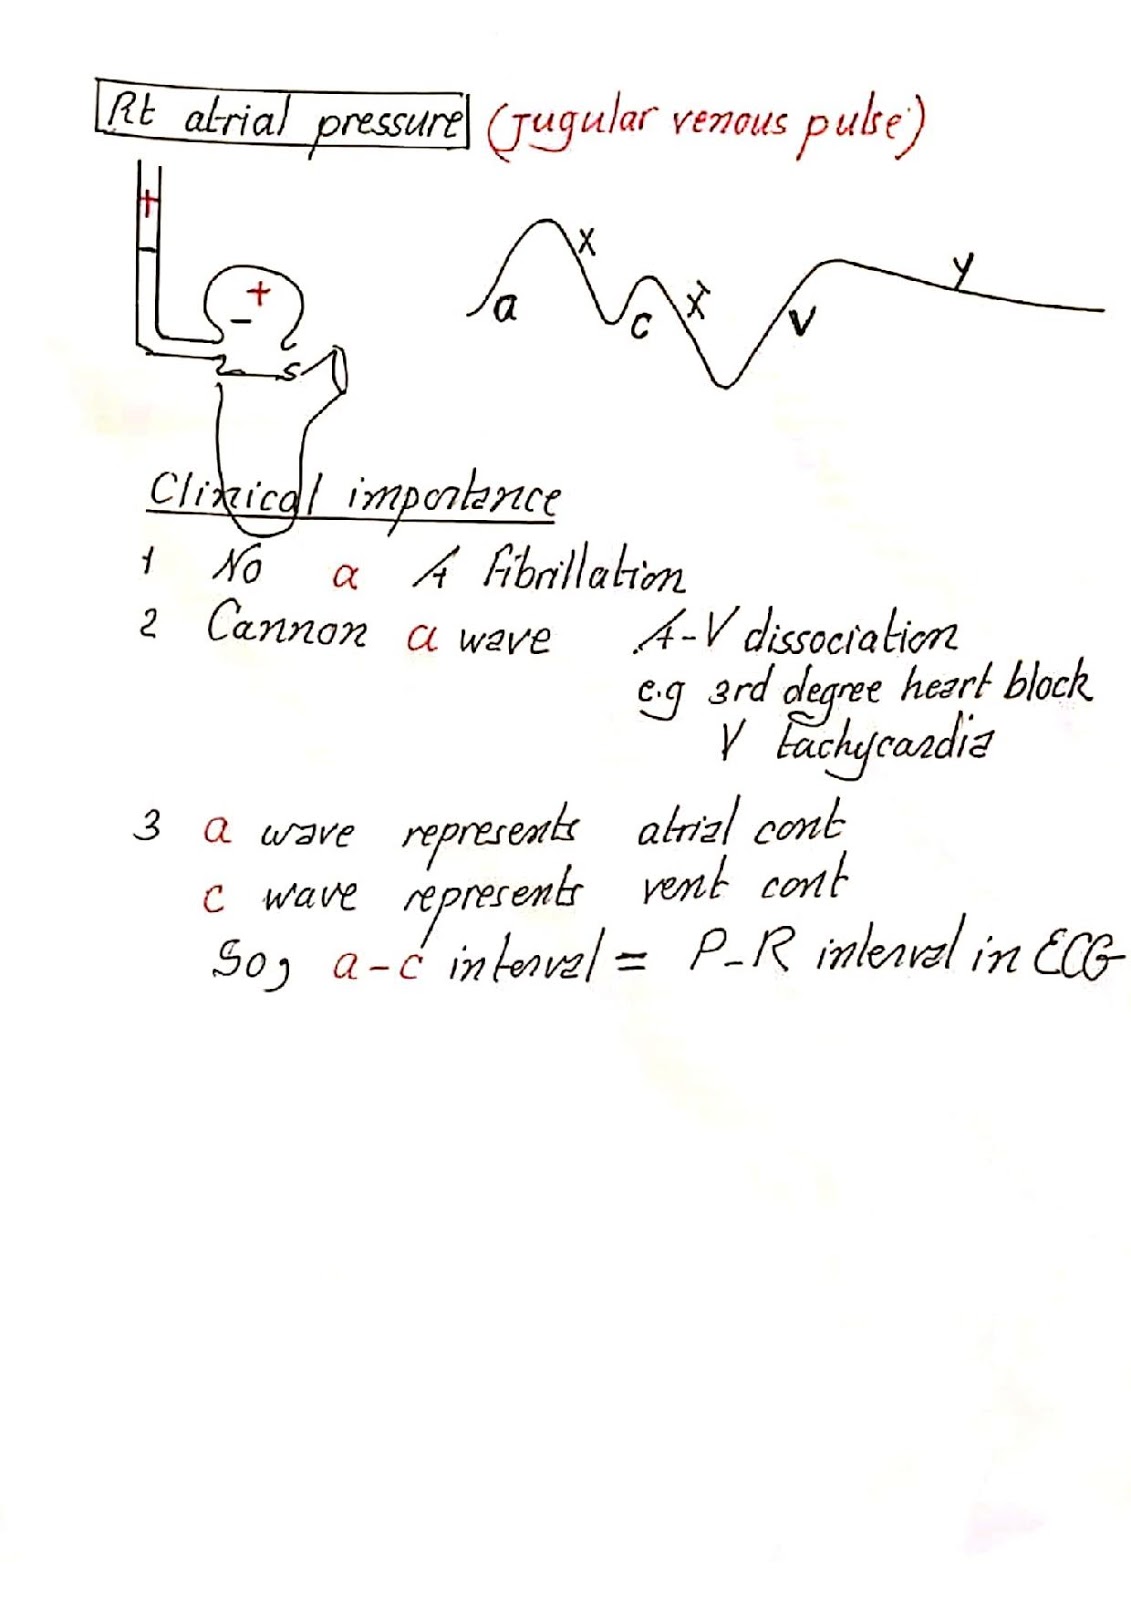 Rt atrial pressure (Jugular venous pulse)
+
+
-
a
x
c
x̄
v
y
Clinical importance
1 No a A fibrillation
2 Cannon a wave A-V dissociation
e.g 3rd degree heart block
V tachycardia
3 a wave represents atrial cont
c wave represents vent cont
So, a-c interval = P-R interval in ECG